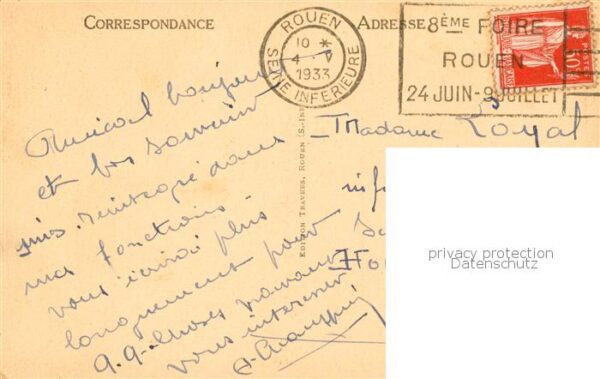 CORRESPONDANCE
ADRESSE
ROUEN
10 *
4 - V
1933
SEINE INFERIEURE
8ÈME FOIRE
ROUEN
24 JUIN-9 JUILLET
POSTES
50
Amical bonjour
et bon souvenir
suis réintégré dans
mes fonctions
vous écrirai plus
longuement pour
q.q. choses pouvant
vous intéresser
Madame Loyal
EDITION TRAVERS, ROUEN (S.-INF
privacy protection
Datenschutz